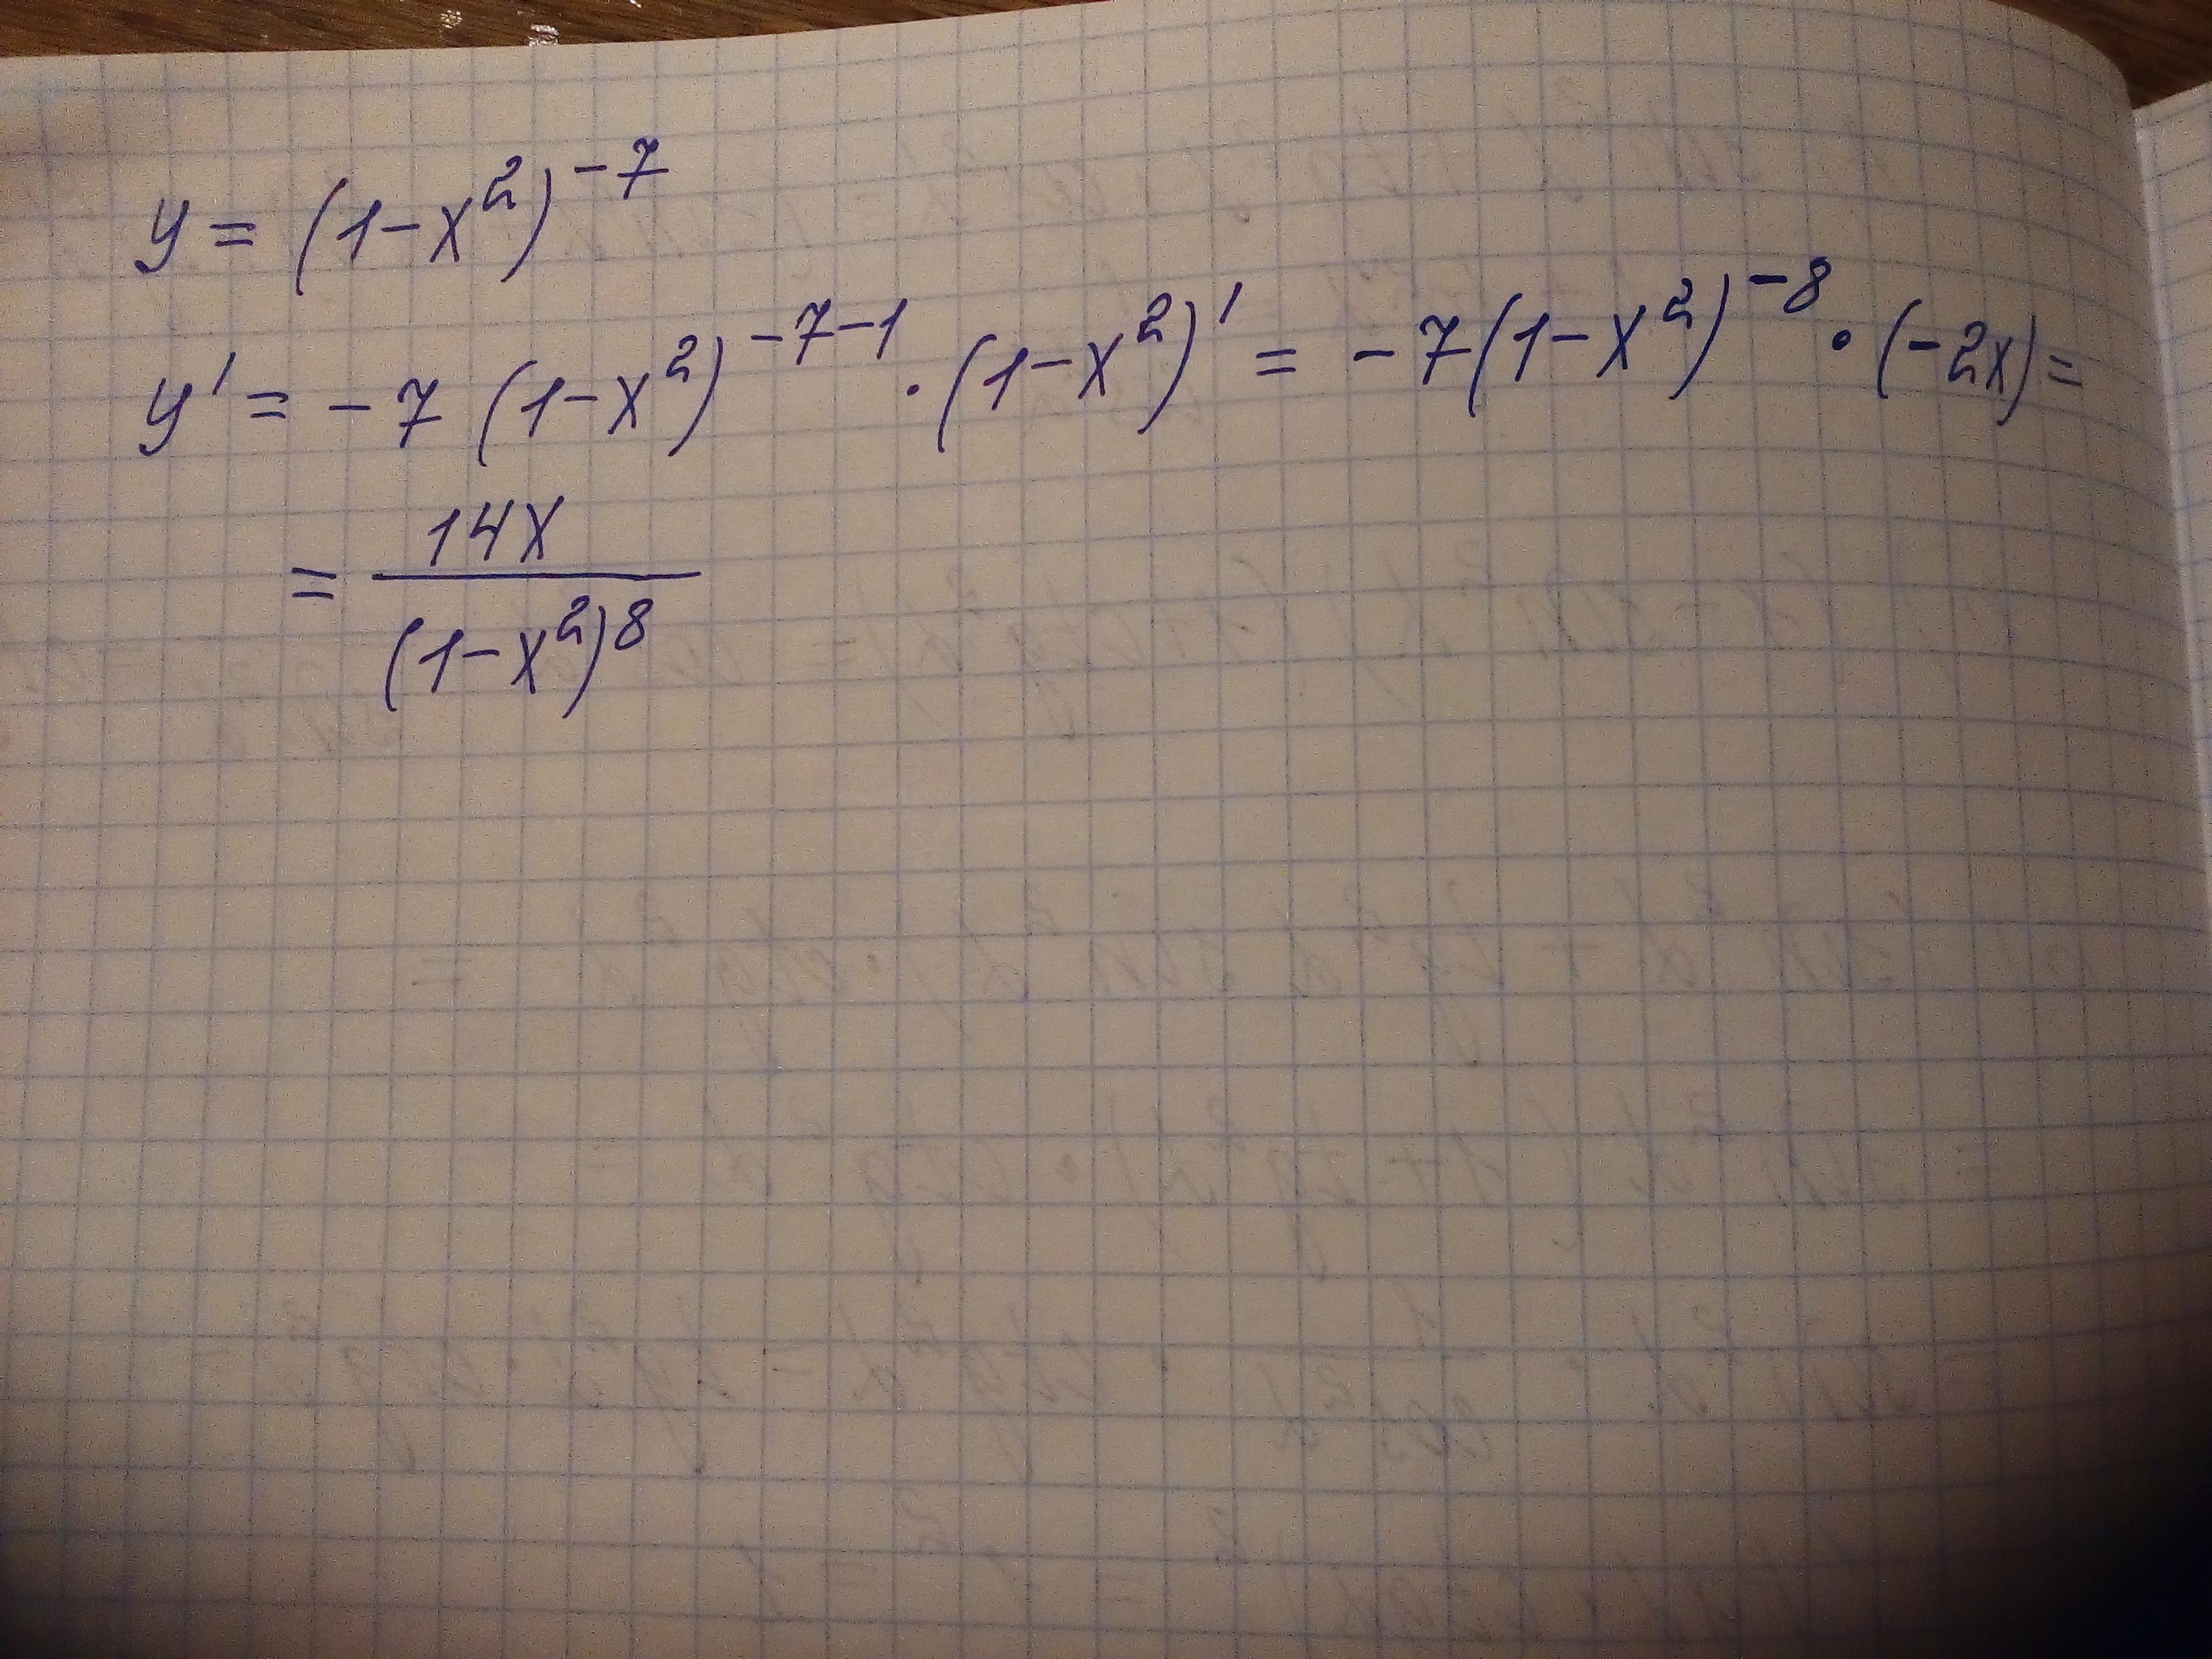 y = (1-x²)⁻⁷
y' = -7 (1-x²)⁻⁷⁻¹ · (1-x²)' = -7(1-x²)⁻⁸ · (-2x) =
= 14x / (1-x²)⁸